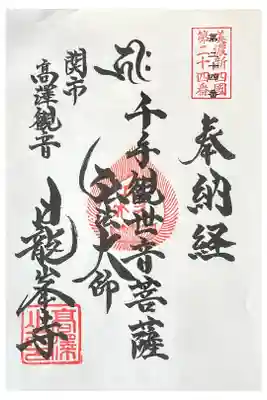 美濃新四國
第二十四番
奉納経
千手觀世音菩薩
弘法大師
関市
髙澤観音
日龍峯寺